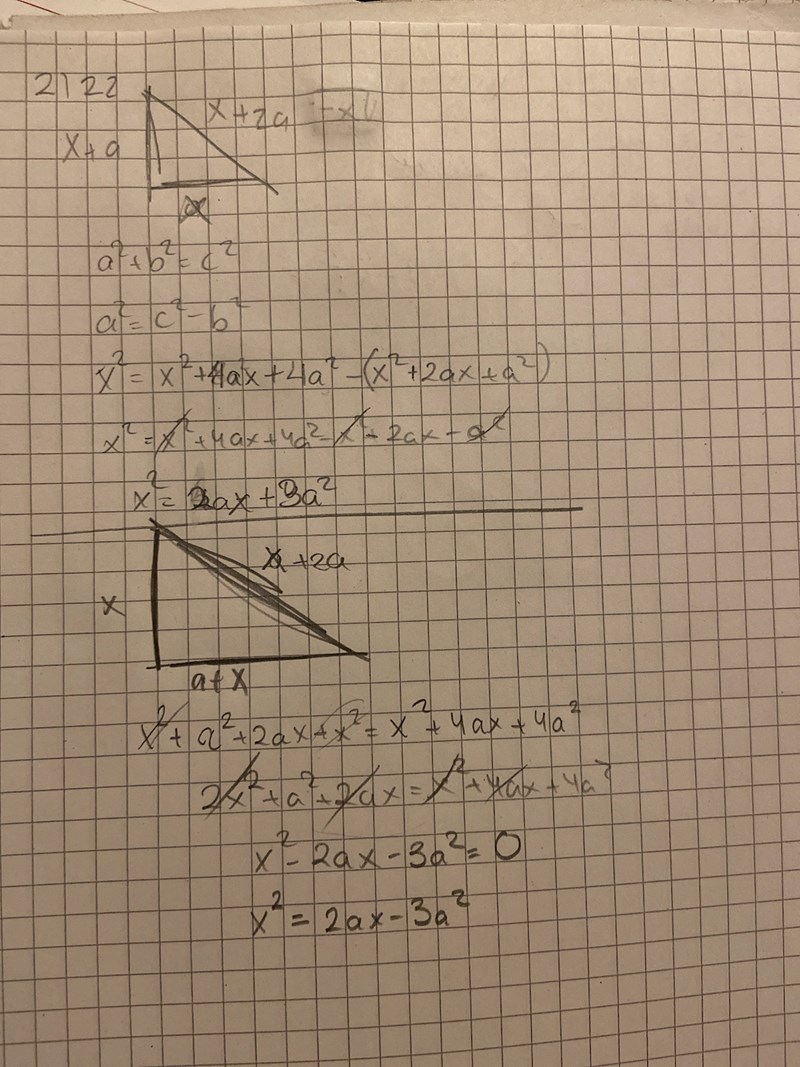 2122
x+2a
x+a
x
a²+b²=c²
a²=c²-b²
x²=x²+4ax+4a²-(x²+2ax+a²)
x²=x²+4ax+4a²-x²-2ax-a²
x²=2ax+3a²
x+2a
x
a+x
x²+a²+2ax+x²=x²+4ax+4a²
2x²+a²+2ax=x²+4ax+4a²
x²-2ax-3a²=0
x²=2ax-3a²